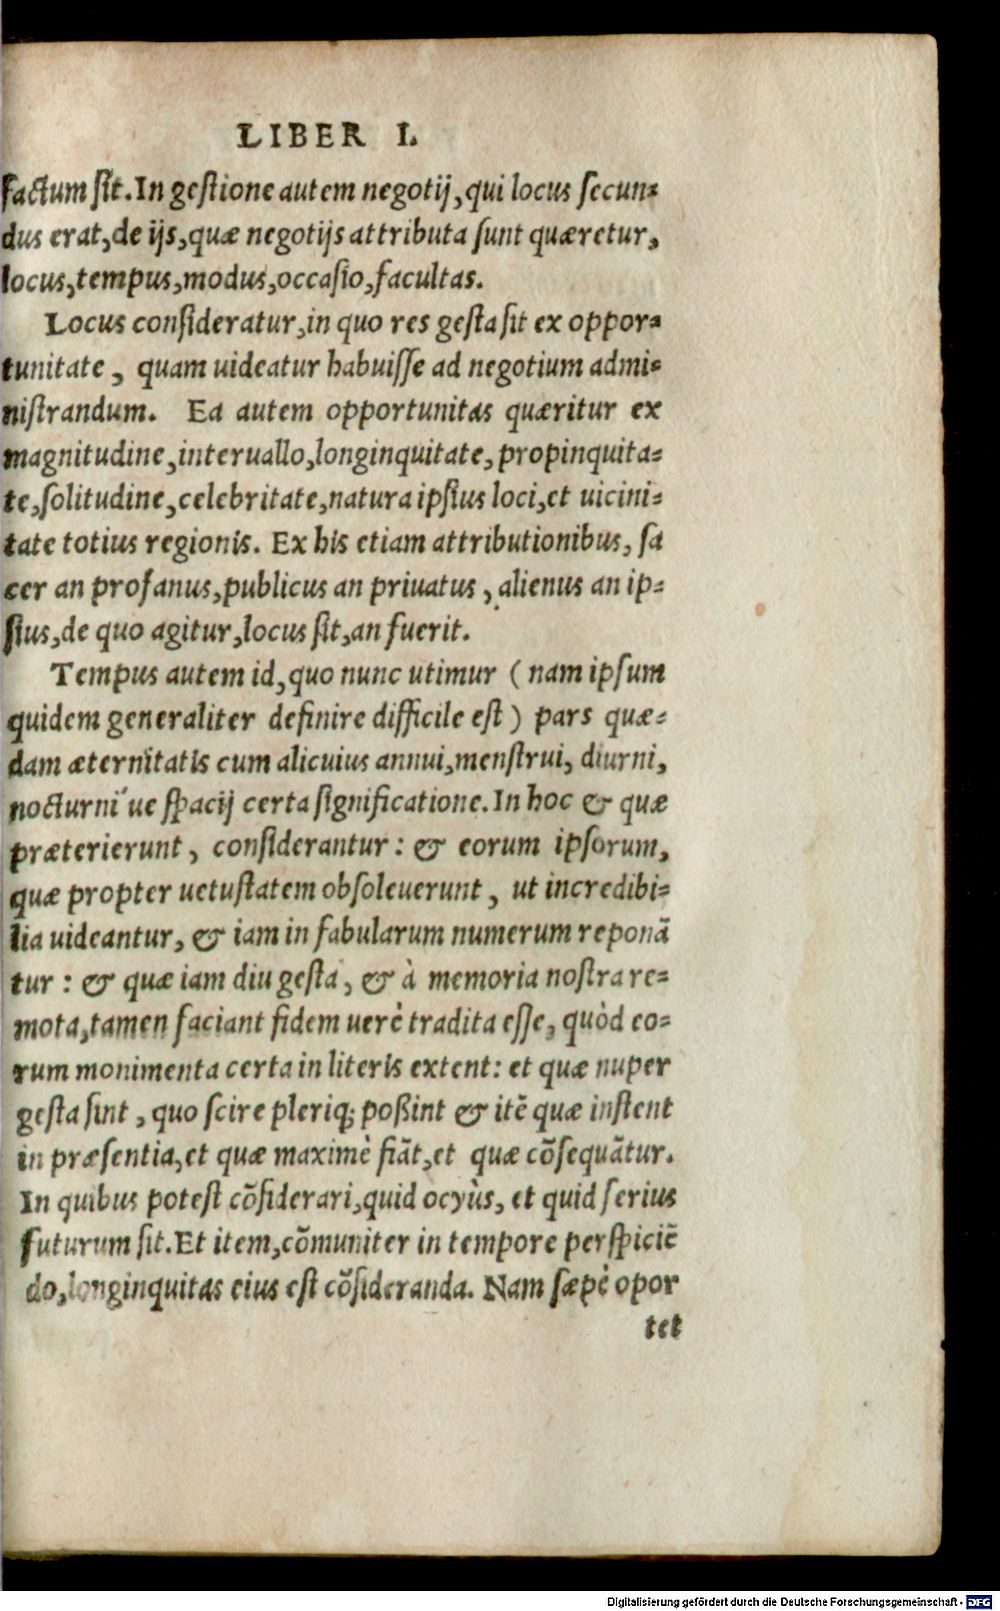 LIBER I.
factum sit. In gestione autem negotij, qui locus secun-
dus erat, de ijs, quæ negotijs attributa sunt quæretur,
locus, tempus, modus, occasio, facultas.
Locus consideratur, in quo res gesta sit ex oppor-
tunitate, quam uideatur habuisse ad negotium admi-
nistrandum. Ea autem opportunitas quæritur ex
magnitudine, interuallo, longinquitate, propinquita-
te, solitudine, celebritate, natura ipsius loci, et uicini-
tate totius regionis. Ex his etiam attributionibus, sa
cer an profanus, publicus an priuatus, alienus an ip-
sius, de quo agitur, locus sit, an fuerit.
Tempus autem id, quo nunc utimur (nam ipsum
quidem generaliter definire difficile est) pars quæ-
dam æternitatis cum alicuius annui, menstrui, diurni,
nocturni ue spacij certa significatione. In hoc & quæ
præterierunt, considerantur: & eorum ipsorum,
quæ propter uetustatem obsoleuerunt, ut incredibi-
lia uideantur, & iam in fabularum numerum reponã
tur: & quæ iam diu gesta, & à memoria nostra re-
mota, tamen faciant fidem uerè tradita esse, quòd eo-
rum monimenta certa in literis extent: et quæ nuper
gesta sint, quo scire pleriq; poßint & itẽ quæ instent
in præsentia, et quæ maximè fiãt, et quæ cõsequãtur.
In quibus potest cõsiderari, quid ocyùs, et quid serius
futurum sit. Et item, cõmuniter in tempore perspiciẽ
do, longinquitas eius est cõsideranda. Nam sæpè opor
tet
Digitalisierung gefördert durch die Deutsche Forschungsgemeinschaft - DFG